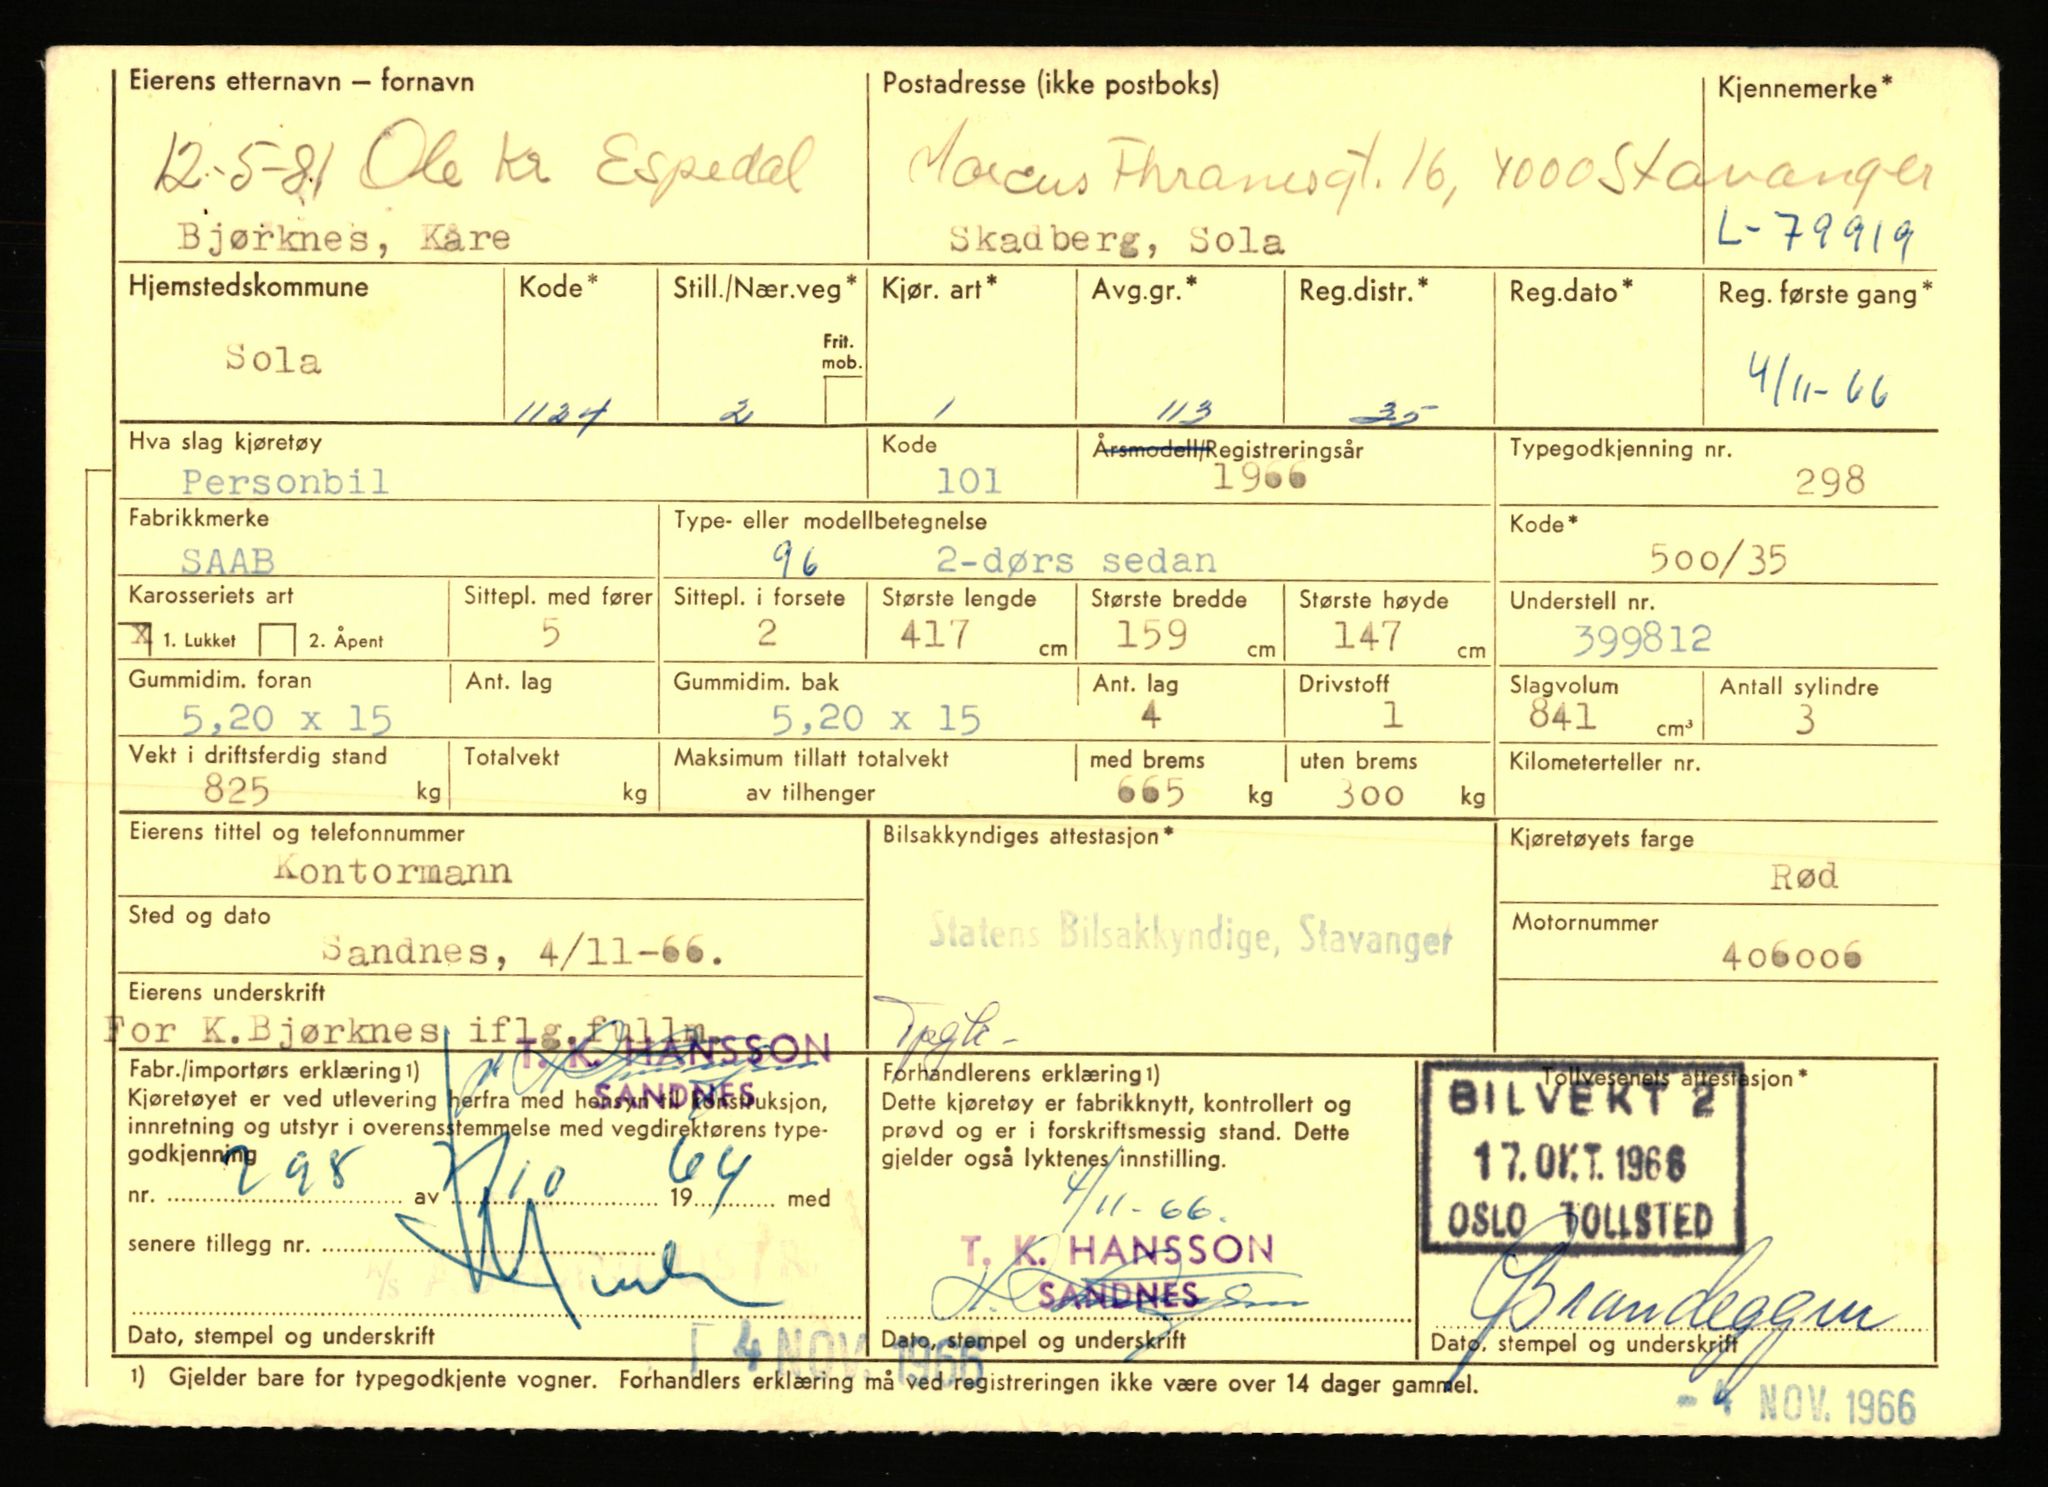 Eierens etternavn — fornavn
Postadresse (ikke postboks)
Kjennemerke*
12-5-81 Ole Kr Espedal
Marcus Thranesgt. 16, 4000 Stavanger
Bjørknes, Kåre
Skadberg, Sola
L-79919
Hjemstedskommune
Kode*
Still./Nær.veg*
Kjør. art*
Avg.gr.*
Reg.distr.*
Reg.dato*
Reg. første gang*
Frit.
mob.
Sola
1124
2
1
113
35
4/11-66
Hva slag kjøretøy
Kode
Årsmodell/Registreringsår
Typegodkjenning nr.
Personbil
101
1966
298
Fabrikkmerke
Type- eller modellbetegnelse
Kode*
SAAB
96 2-dørs sedan
500/35
Karosseriets art
Sittepl. med fører
Sittepl. i forsete
Største lengde
Største bredde
Største høyde
Understell nr.
X 1. Lukket 2. Åpent
5
2
417 cm
159 cm
147 cm
399812
Gummidim. foran
Ant. lag
Gummidim. bak
Ant. lag
Drivstoff
Slagvolum
Antall sylindre
5,20 x 15
5,20 x 15
4
1
841 cm³
3
Vekt i driftsferdig stand
Totalvekt
Maksimum tillatt totalvekt
av tilhenger
med brems
uten brems
Kilometerteller nr.
825 kg
kg
665 kg
300 kg
Eierens tittel og telefonnummer
Bilsakkyndiges attestasjon*
Kjøretøyets farge
Kontormann
Rød
Sted og dato
Motornummer
Sandnes, 4/11-66.
Statens Bilsakkyndige, Stavanger
406006
Eierens underskrift
For K.Bjørknes iflg.fullm.
T. K. HANSSON
SANDNES
Fabr./importørs erklæring 1)
Kjøretøyet er ved utlevering herfra med hensyn til konstruksjon,
innretning og utstyr i overensstemmelse med vegdirektørens type-
godkjenning
nr. 298 av 7/10 1964 med
senere tillegg nr.
Dato, stempel og underskrift
T 4 NOV. 1966
Forhandlerens erklæring 1)
Dette kjøretøy er fabrikknytt, kontrollert og
prøvd og er i forskriftsmessig stand. Dette
gjelder også lyktenes innstilling.
4/11-66.
T. K. HANSSON
SANDNES
Dato, stempel og underskrift
Tollvesenets attestasjon*
BILVEKT 2
17. OKT. 1966
OSLO TOLLSTED
Brandeggen
Dato, stempel og underskrift
1) Gjelder bare for typegodkjente vogner. Forhandlers erklæring må ved registreringen ikke være over 14 dager gammel.
- 4 NOV. 1966